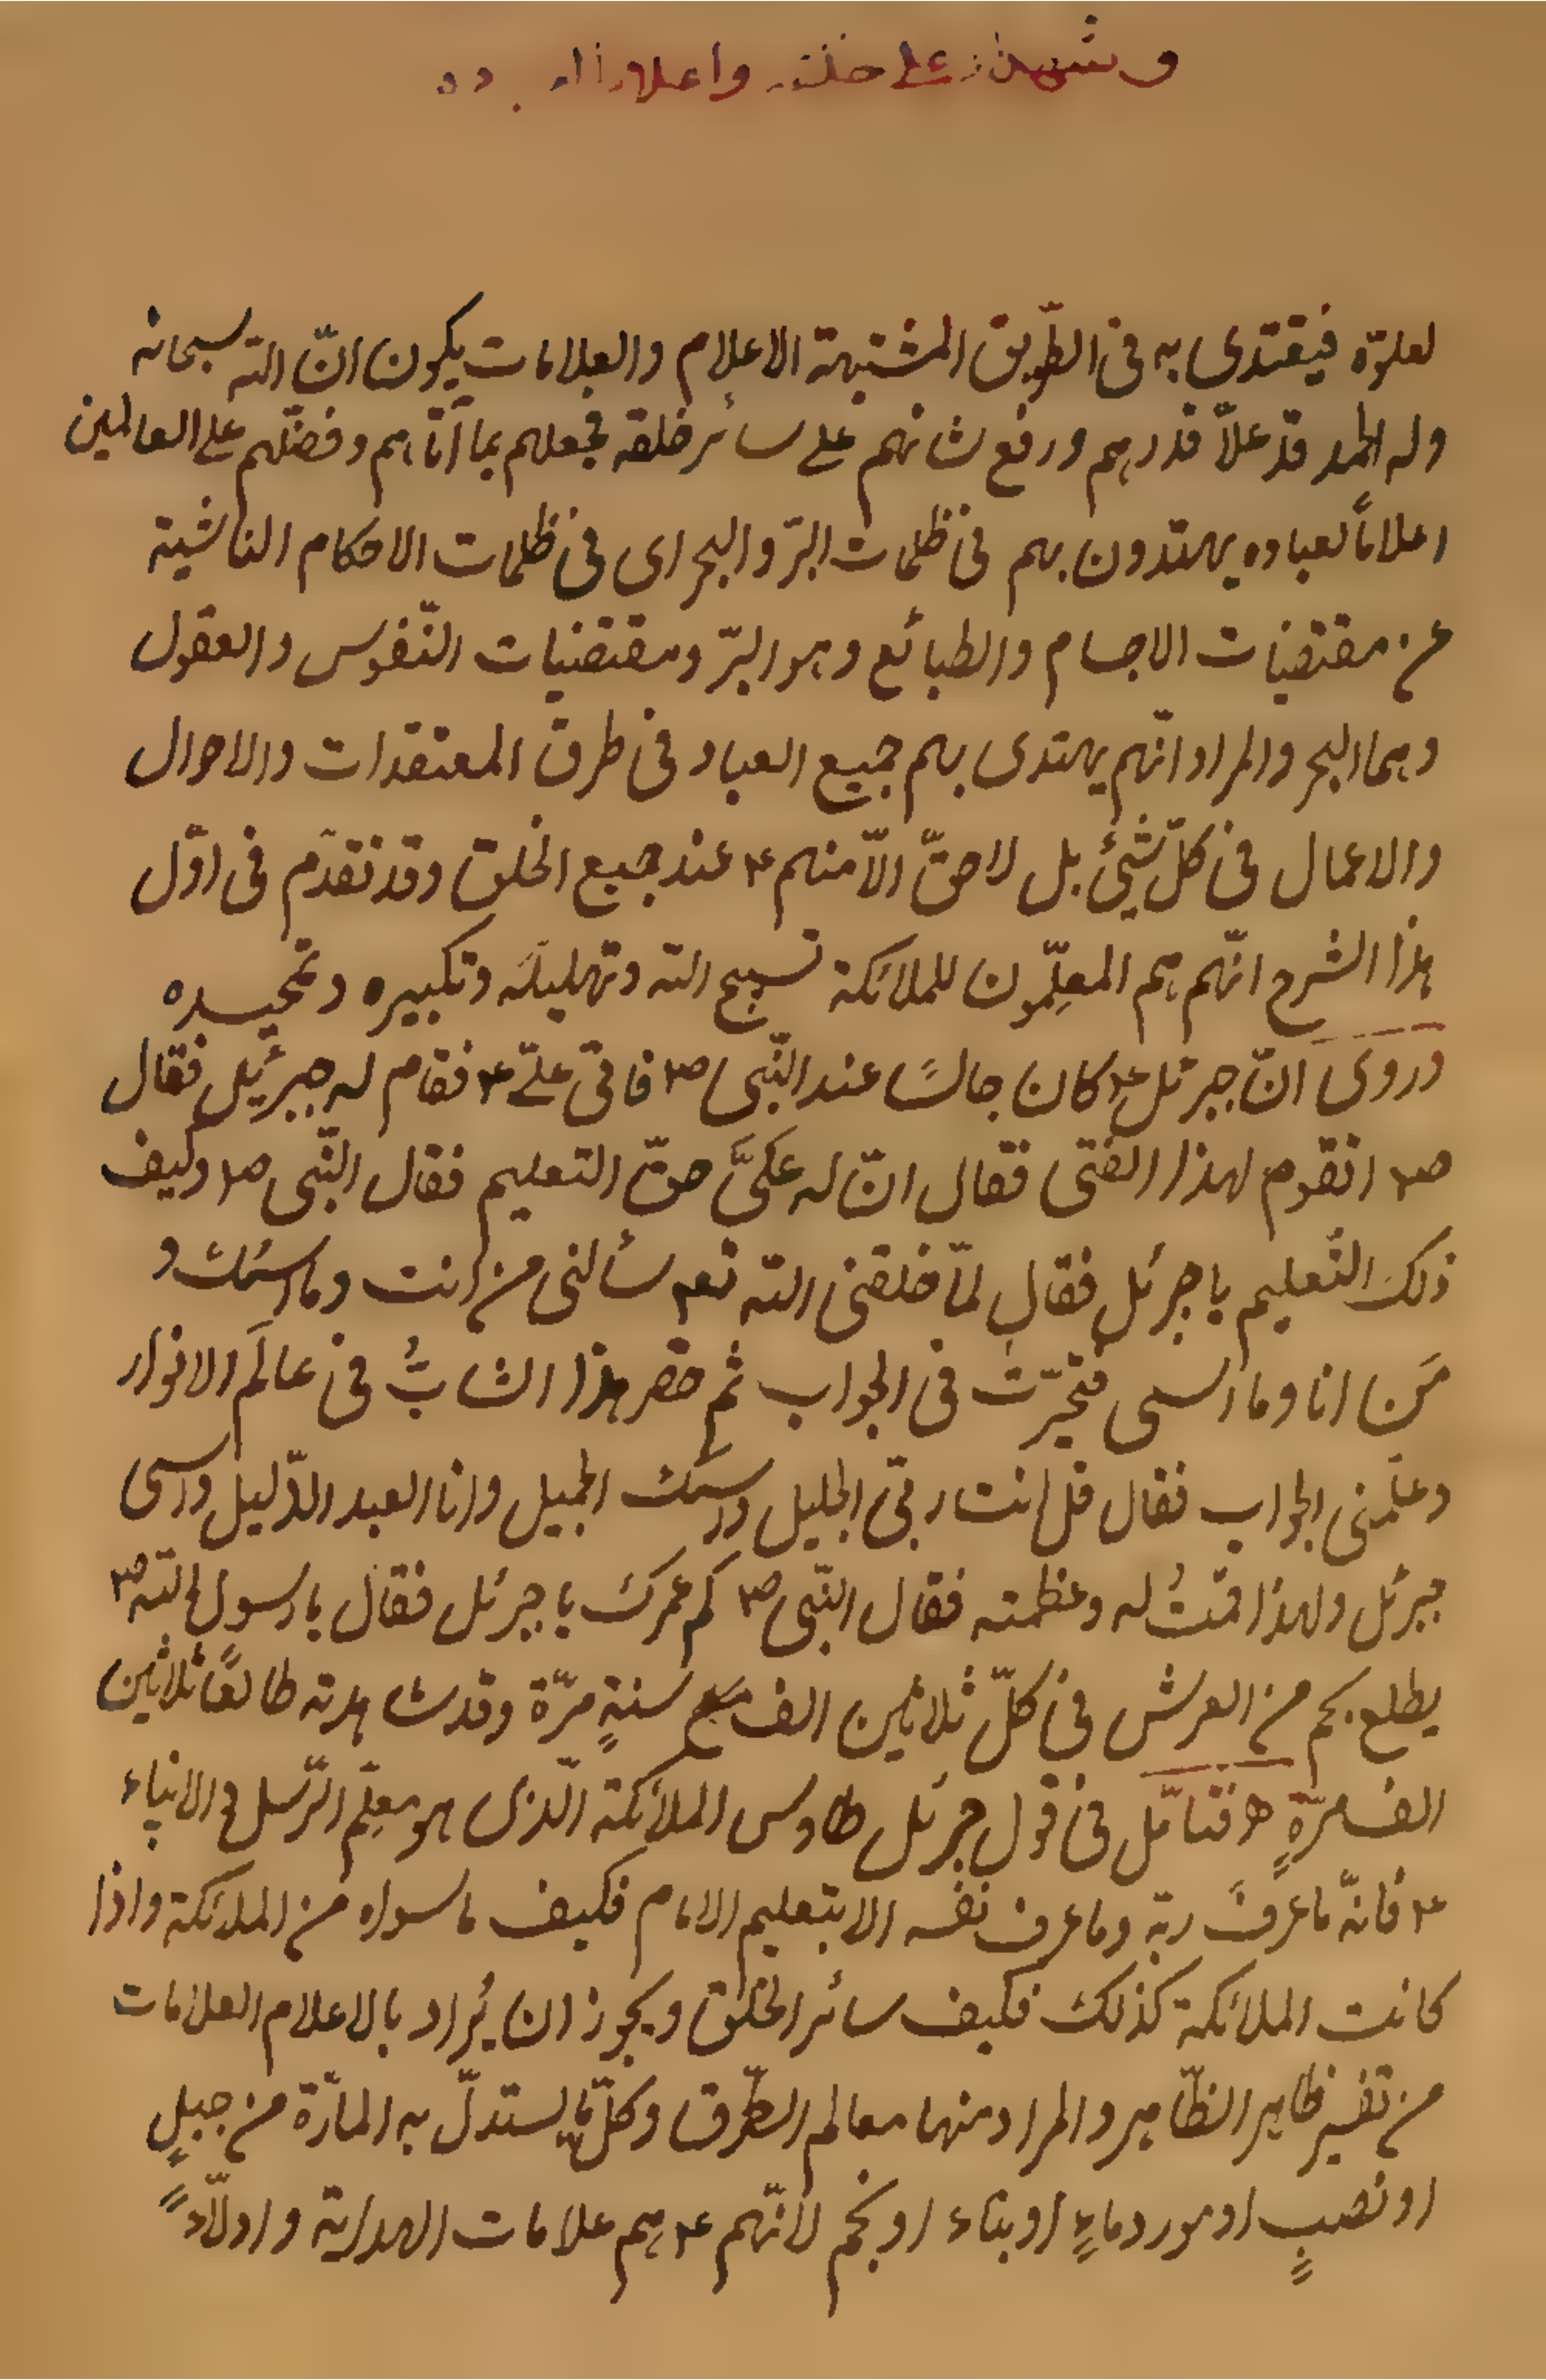 وشهداء على خلقه واعلاما
لعلوّه فيقتدى به فى الطّريق المشتبهة الاعلام والعلامات يكون انّ اللّه سبحانه
وله الحمد قد علّا قدرهم ورفع شانهم على سائر خلقه فجعلهم بما آتاهم وفضّلهم على العالمين
اعلامًا لعباده يهتدون بهم فى ظلمات البرّ والبحر اى فى ظلمات الاحكام الناشية
عن مقتضيات الاجسام والطبائع وهو البرّ ومقتضيات النّفوس والعقول
وهما البحر والمراد انّهم يهتدى بهم جميع العباد فى طرق المعتقدات والاحوال
والاعمال فى كلّ شيئ بل لا حقّ الّا منهم ع عند جميع الخلق وقد تقدّم فى اوّل
هذا الشرح انّهم هم المعلّمون للملائكة تسبيح اللّه وتهليله وتكبيره وتمجيده
وروى انّ جبرئل ع كان جالسًا عند النّبى ص فاتى علىّ ع فقام له جبرئيل فقال
ص اتقوم لهذا الفتى فقال انّ له عَلَىَّ حقّ التعليم فقال النّبى ص وكيف
ذلك التّعليم يا جبرئل فقال لمّا خلقنى اللّه تعم سألنى من انت وما اسمك و
مَن انا وما اسمى فتحيّرت فى الجواب ثم حضر هذا الشابُّ فى عالَم الانوار
وعلّمنى الجواب فقال قل انت ربّى الجليل واسمك الجميل وانا العبد الذّليل واسمى
جبرئل ولهذا قمتُ له وعظمته فقال النّبى ص كم عمرك يا جبرئل فقال يا رسول اللّه ص
يطلع نجم من العرش فى كلّ ثلاثين الف سنةٍ مرّة وقد شاهدته طالعًا ثلاثين
الف مرّةٍ ه فتامّل فى قول جبرئل طاوس الملائكة الّذى هو معلّم الرّسل والانبياء
ع فانّه ما عرفَ ربّه وما عرف نفسه الا بتعليم الامام فكيف ما سواه من الملائكة واذا
كانت الملائكة كذلك فكيف سائر الخلق ويجوز ان يُراد بالاعلام العلامات
من تفسير ظاهر الظّاهر والمراد منها معالم الطّرق وكلّ ما يستدلّ به المارّة من جبلٍ
او نصبٍ او مورد ماءٍ او بناء او نجم لانّهم ع هم علامات الهداية وادلّاءً